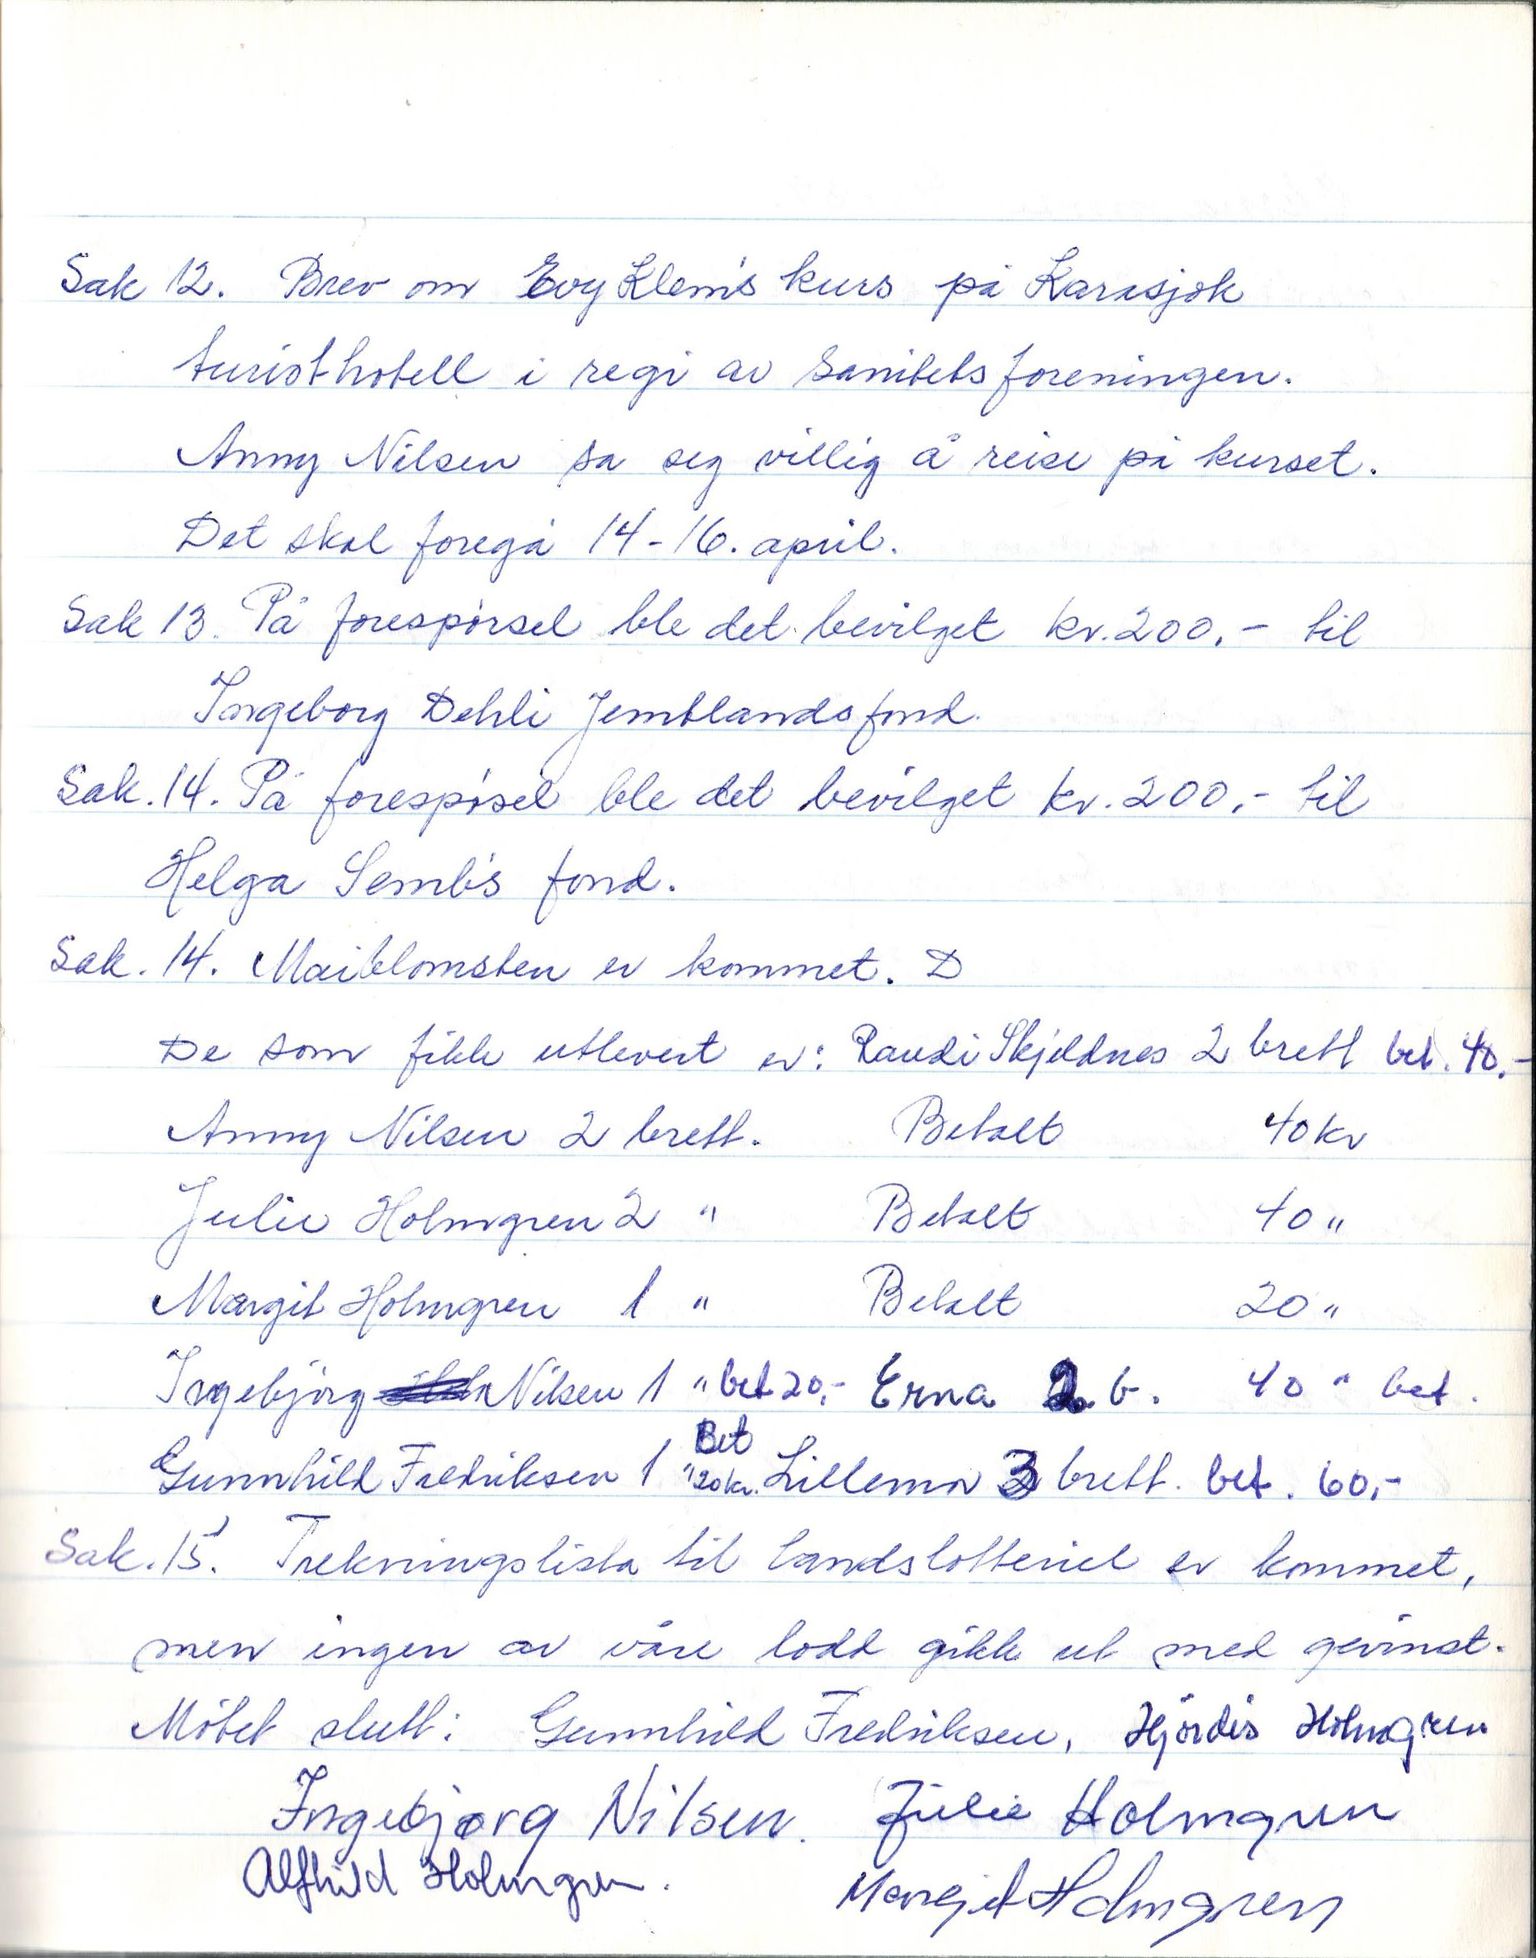 Sak 12. Brev om Evy Klem's kurs på Karasjok
turisthotell i regi av Sanitetsforeningen.
Anny Nilsen sa seg villig å reise på kurset.
Det skal foregå 14-16. april.
Sak 13. På forespørsel ble det bevilget kr. 200,- til
Ingeborg Dehli Jemtlandsfond.
Sak. 14. På forespøsel ble det bevilget kr. 200,- til
Helga Semb's fond.
Sak. 14. Maiblomsten er kommet. D
De som fikk utlevert er: Randi Skjeldnes 2 brett bet. 40,-
Anny Nilsen 2 brett. Betalt 40 kr
Julie Holmgren 2 " Betalt 40 "
Margit Holmgren 1 " Betalt 20 "
Ingebjørg Nilsen 1 " bet 20,- Erna 2 b. 40 " bet.
Gunnhild Fredriksen 1 " Bet 20 kr. Lillemor 3 brett. bet. 60,-
Sak. 15. Trekningslista til landslotteriet er kommet,
men ingen av våre lodd gikk ut med gevinst.
Møtet slutt: Gunnhild Fredriksen, Hjördis Holmgren
Ingebjørg Nilsen. Julie Holmgren
Alfhild Holmgren. Margit Holmgren